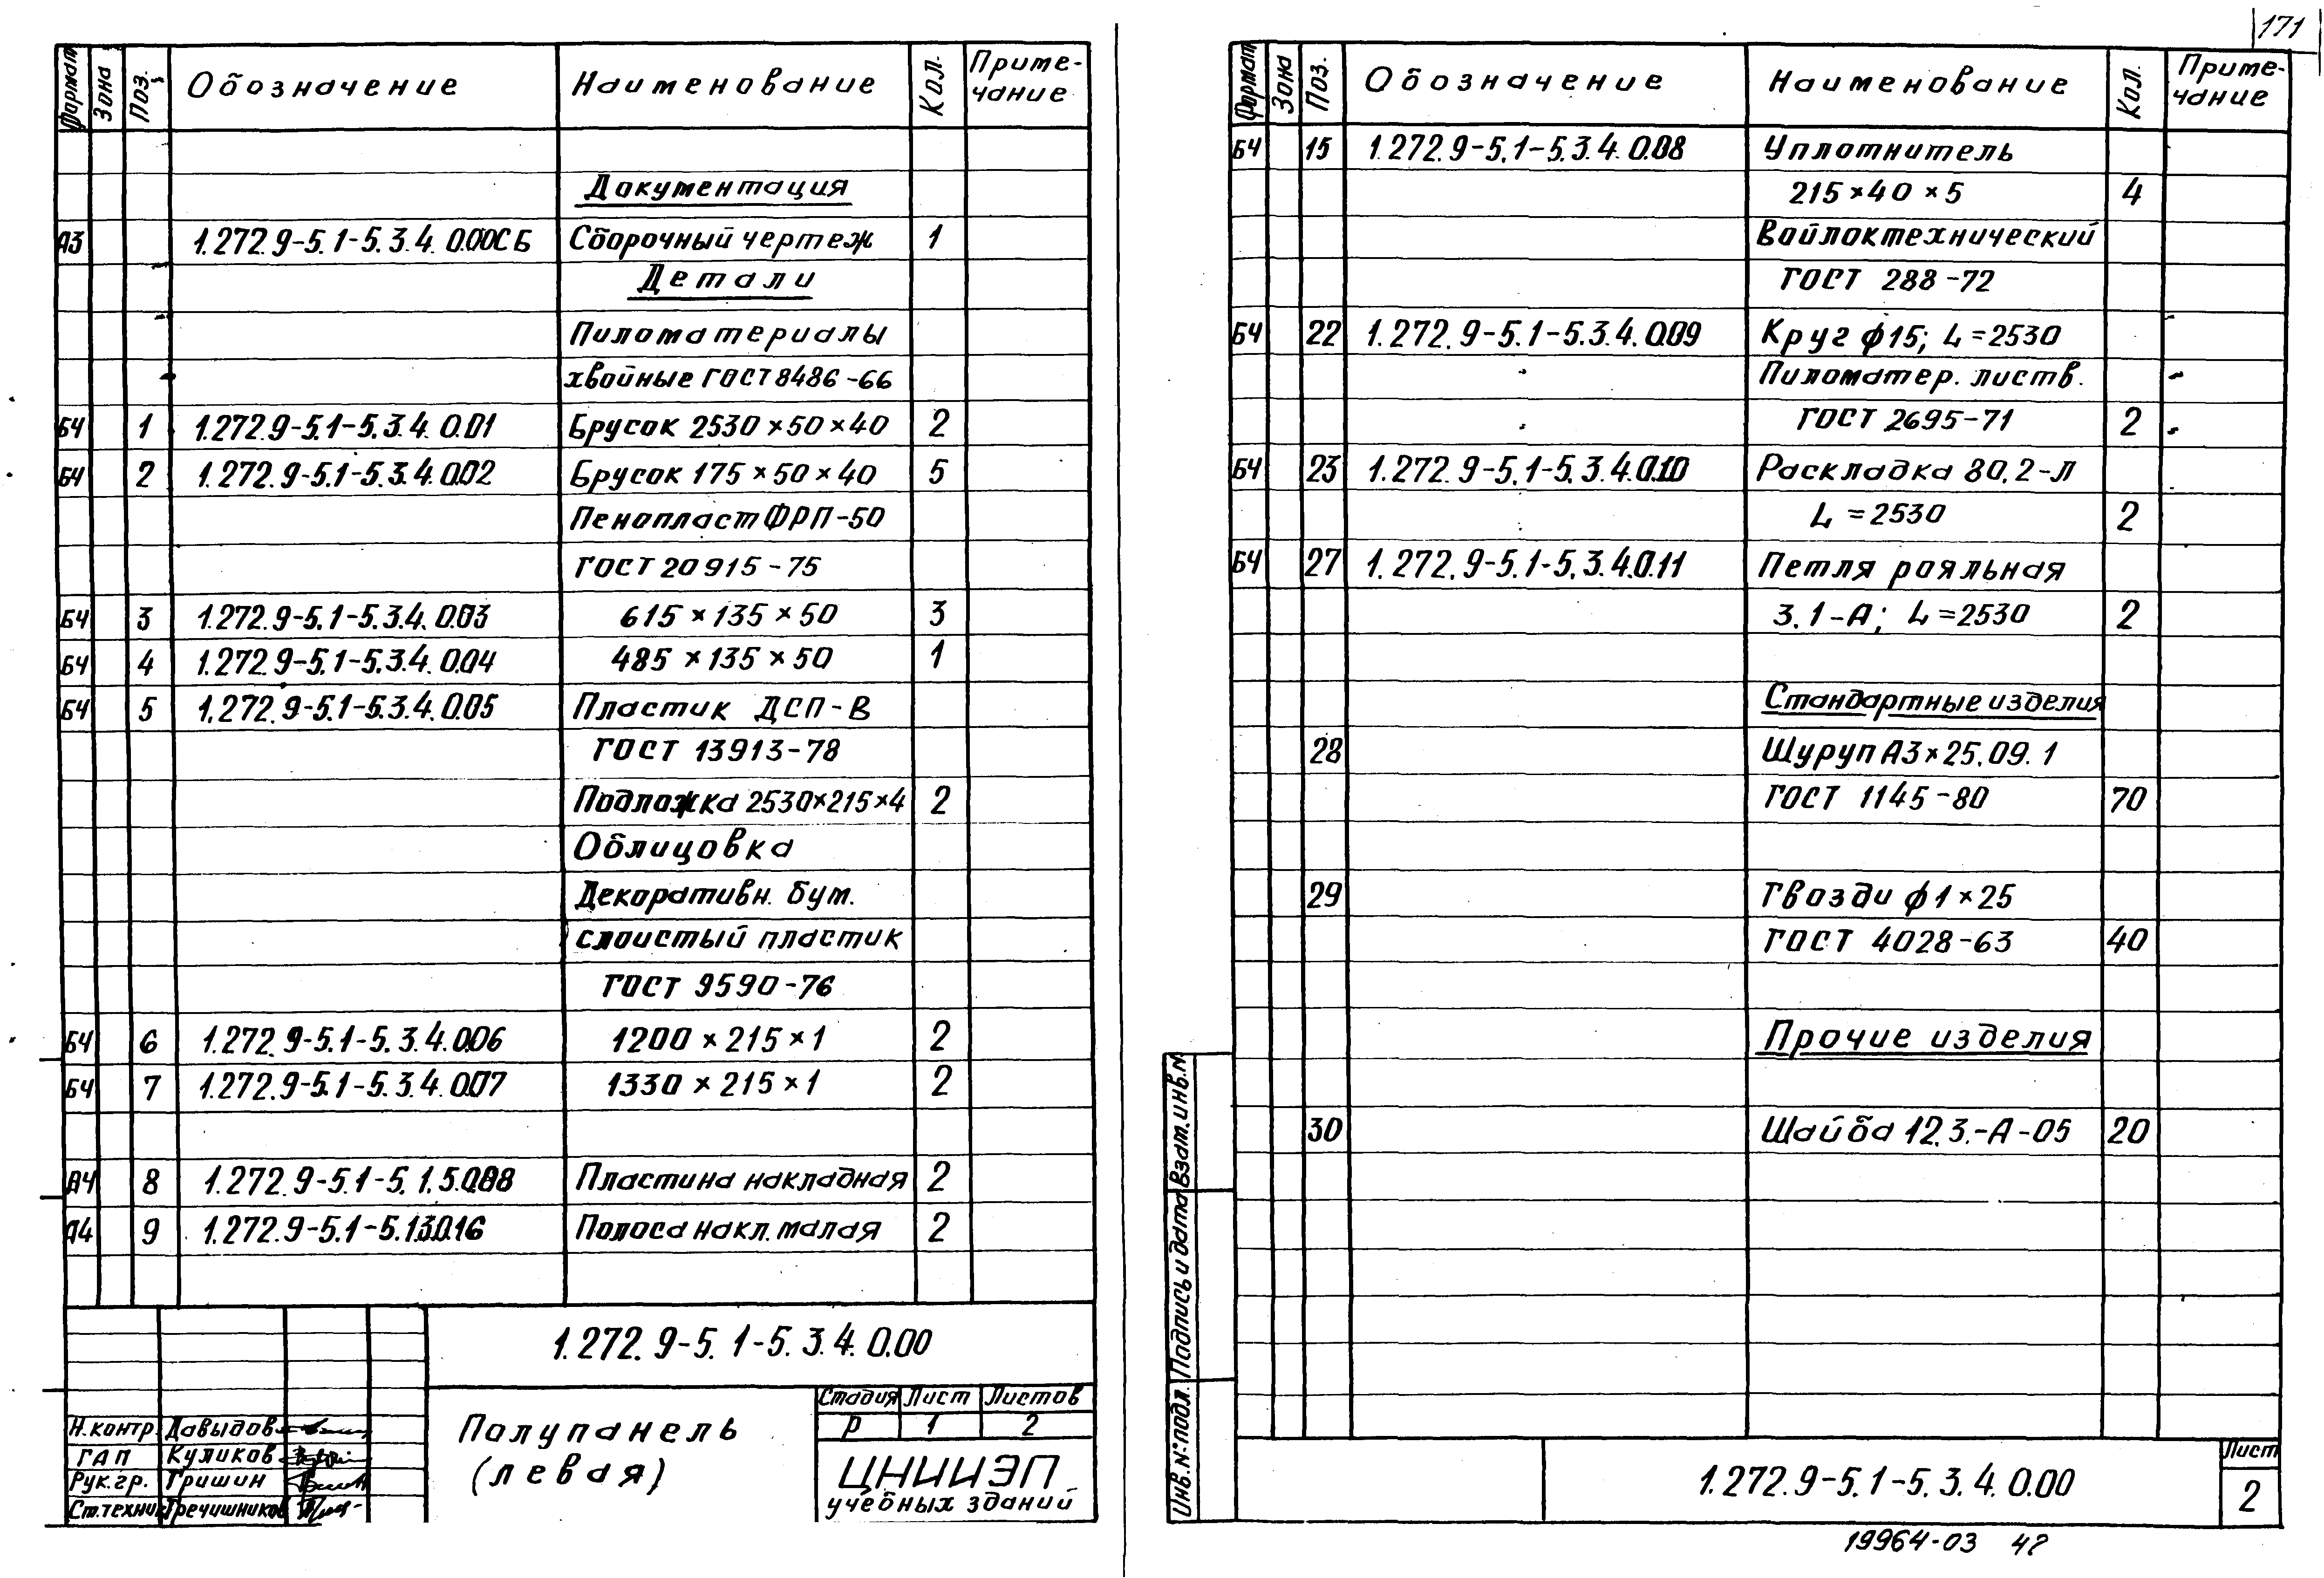 171
Формат Зона Поз. Обозначение Наименование Кол. Приме-
чание
Документация
А3 1.272.9-5.1-5.3.4.0.00СБ Сборочный чертеж 1
Детали
Пиломатериалы
хвойные ГОСТ 8486-66
БЧ 1 1.272.9-5.1-5.3.4.0.01 Брусок 2530×50×40 2
БЧ 2 1.272.9-5.1-5.3.4.0.02 Брусок 175×50×40 5
Пенопласт ФРП-50
ГОСТ 20915-75
БЧ 3 1.272.9-5.1-5.3.4.0.03 615×135×50 3
БЧ 4 1.272.9-5.1-5.3.4.0.04 485×135×50 1
БЧ 5 1.272.9-5.1-5.3.4.0.05 Пластик ДСП-В
ГОСТ 13913-78
Подложка 2530×215×4 2
Облицовка
Декоративн. бум.
слоистый пластик
ГОСТ 9590-76
БЧ 6 1.272.9-5.1-5.3.4.0.06 1200×215×1 2
БЧ 7 1.272.9-5.1-5.3.4.0.07 1330×215×1 2
А4 8 1.272.9-5.1-5.1.5.0.08 Пластина накладная 2
А4 9 1.272.9-5.1-5.1.3.0.16 Полоса накл. малая 2
1.272.9-5.1-5.3.4.0.00
Полупанель
(левая)
Стадия Лист Листов
Р 1 2
ЦНИИЭП
учебных зданий
Н.контр. Давыдов
ГАП Куликов
Рук.гр. Гришин
Ст.техник Гречишников
Формат Зона Поз. Обозначение Наименование Кол. Приме-
чание
БЧ 15 1.272.9-5.1-5.3.4.0.08 Уплотнитель
215×40×5 4
Войлок технический
ГОСТ 288-72
БЧ 22 1.272.9-5.1-5.3.4.0.09 Круг ϕ15; L=2530
Пиломатер. листв.
ГОСТ 2695-71 2
БЧ 23 1.272.9-5.1-5.3.4.0.10 Раскладка 80.2-Л
L=2530 2
БЧ 27 1.272.9-5.1-5.3.4.0.11 Петля рояльная
3.1-А; L=2530 2
Стандартные изделия
28 Шуруп А3×25.09.1
ГОСТ 1145-80 70
29 Гвозди ϕ1×25
ГОСТ 4028-63 40
Прочие изделия
30 Шайба 12.3.-А-05 20
Инв.№подл. Подпись и дата Взам.инв.№
1.272.9-5.1-5.3.4.0.00
Лист
2
19964-03 42